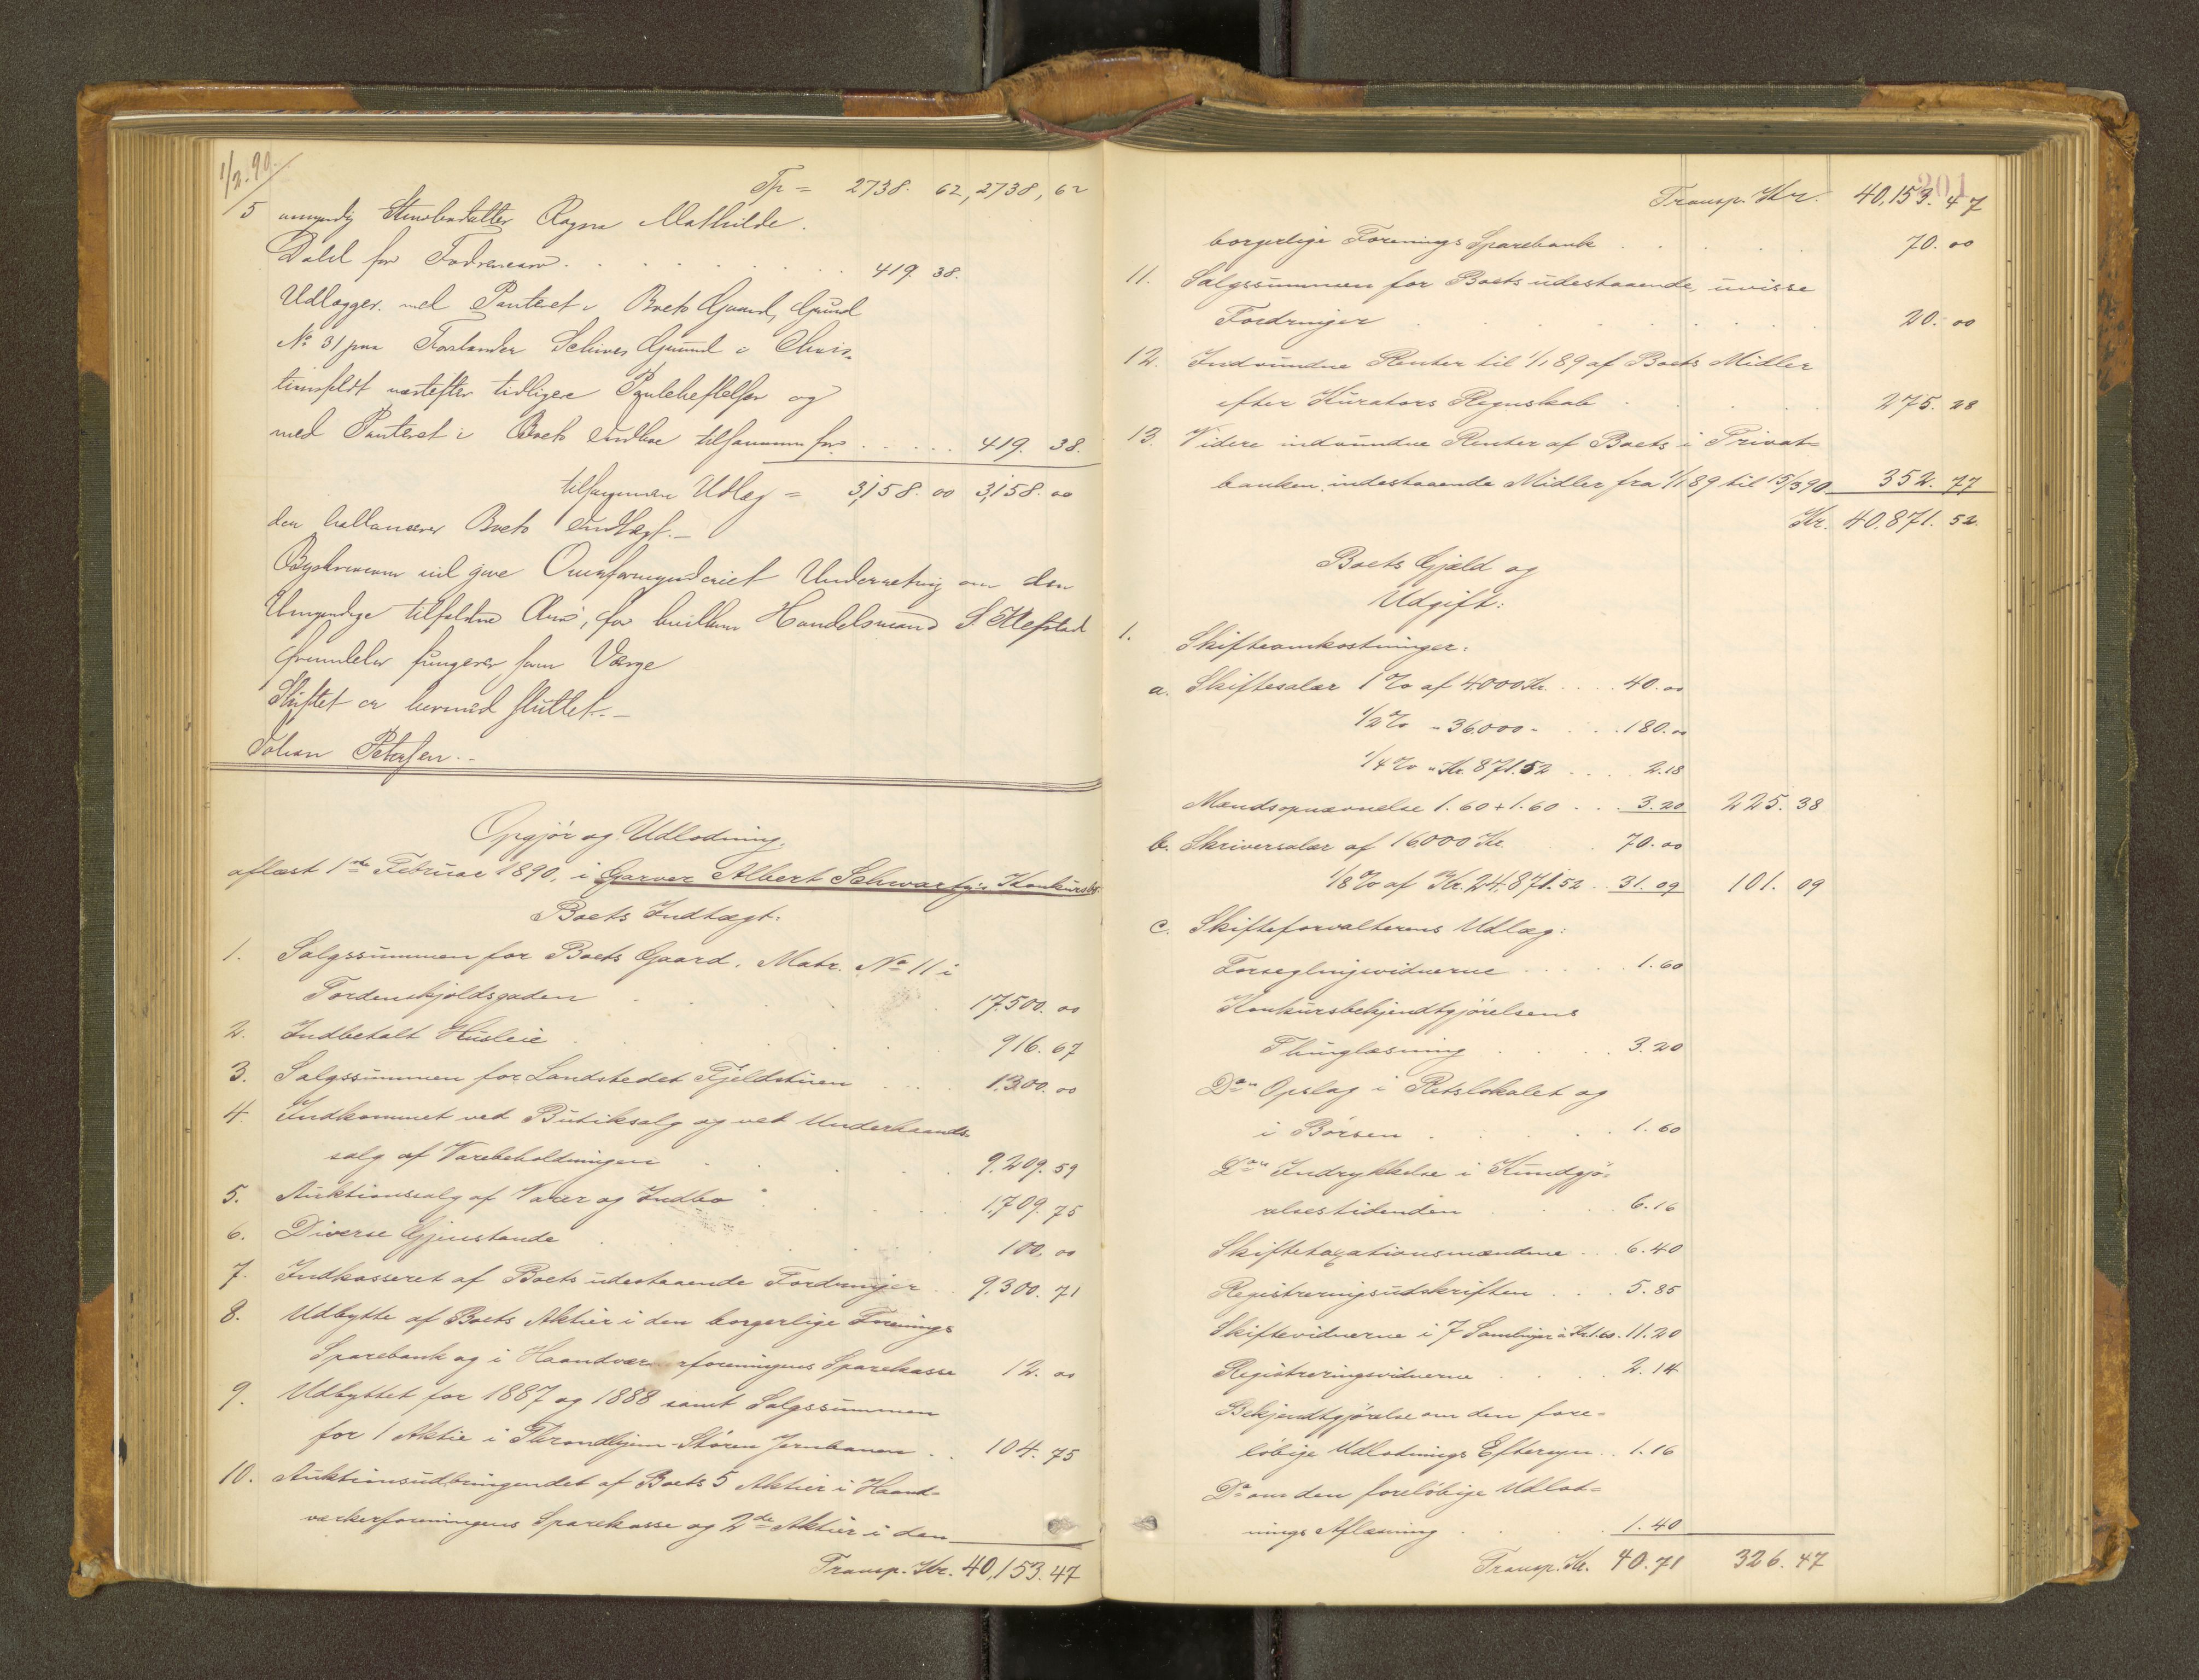 1/2.90.
Tp = 2738. 62, 2738, 62
5 umyndig Stenbendatter Ragna Mathilde.
Dahl for Fadrenearv . . . . . . . 419. 38.
Udlægges med Panteret i Boets Gaard, Grund
No 31 paa Forlander Schives Grund i Chris-
tiansfeldt næstefter tidligere Pantehæftelser og
med Panteret i Boets Indbo tilsammen for . . . . . 419. 38.
tilsammen Udlæg = 3,158. 00 3,158. 00
den ballancerer Boets Indtægt. —
Byskriveren vil give Overformynderiet Underretning om den
Umyndige tilfaldne Arv, for hvilken Handelsmand S. Klefstad
fremdeles fungerer som Værge
Skiftet er hermed sluttet. —
Johan Petersen. -
Opgjör og Udlodning,
aflæst 1ste Februar 1890, i Garver Albert Schwartz's Konkursbo.
Boets Indtægt:
1. Salgssummen for Boets Gaard, Matr. No 11 i
Tordenskjoldsgaden . . . 17.500. 00
2. Indbetalt Husleie . . . 916. 67
3. Salgssummen for Landstedet Fjeldstuen . . . 1.300. 00
4. Indkommet ved Butiksalg og ved Underhaands-
salg af Varebeholdningen . . . 9.209. 59
5. Auktionssalg af Varer og Indbo . . . 1,709. 75
6. Diverse Gjenstande . . . 100. 00
7. Indkasseret af Boets udestaaende Fordringer . . 9.300. 71
8. Udbytte af Boets Aktier i den borgerlige Forenings
Sparebank og i Haandværkerforeningens Sparekasse 12. 00
9. Udbyttet for 1887 og 1888 samt Salgssummen
for 1 Aktie i Throndhjem-Stören Jernbanen . . 104. 75
10. Auktionsudbringendet af Boets 5 Aktier i Haand-
værkerforeningens Sparekasse og 2de Aktier i den
Transp. Kr. 40,153. 47
201
Transp. Kr. 40,153. 47
borgerlige Forenings Sparebank . . . 70. 00
11. Salgssummen for Boets udestaaende, uvisse
Fordringer . . . 20. 00
12. Indvundne Renter til 1/1 89 af Boets Midler
efter Kurators Regnskab . . . 275. 28
13. Videre indvundne Renter af Boets i Privat-
banken indestaaende Midler fra 1/1 89 til 15/3 90 352. 77
Kr. 40.871. 52.
Boets Gjæld og
Udgift:
1. Skifteomkostninger:
a. Skiftesalær 1 % af 4000 Kr. . . . 40. 00
1/2 % - 36.000 - . . . 180. 00
1/4 % - Kr. 871.52 . . . . 2.18
Mændsopnævnelse 1.60 + 1.60 . . . 3.20 225. 38
b. Skriversalær af 16000 Kr. . 70. 00
1/8 % af Kr. 24.871.52 . . 31. 09 101. 09
c. Skifteforvalterens Udlæg:
Forseglingsvidnerne . . . . . 1.60
Konkursbekjendtgjörelsens
Thinglæsning . . . . 3.20
Do " Opslag i Retslokalet og
i Börsen . . . . 1. 60
Do " Indrykkelse i Kundgjö-
relsestidenden . . . 6.16
Skiftetaxationsmændene . . . 6.40
Registreringsudskriften . . . 5.85
Skiftevidnerne i 7 Samlinger à Kr 1.60 . 11.20
Registreringsvidnerne . . . . 2.14
Bekjendtgjörelse om den fore-
löbige Udlodnings Eftersyn . . 1.16
Do om den forelöbige Udlod-
nings Aflæsning . . . . 1.40
Transp. Kr. 40.71 326. 47